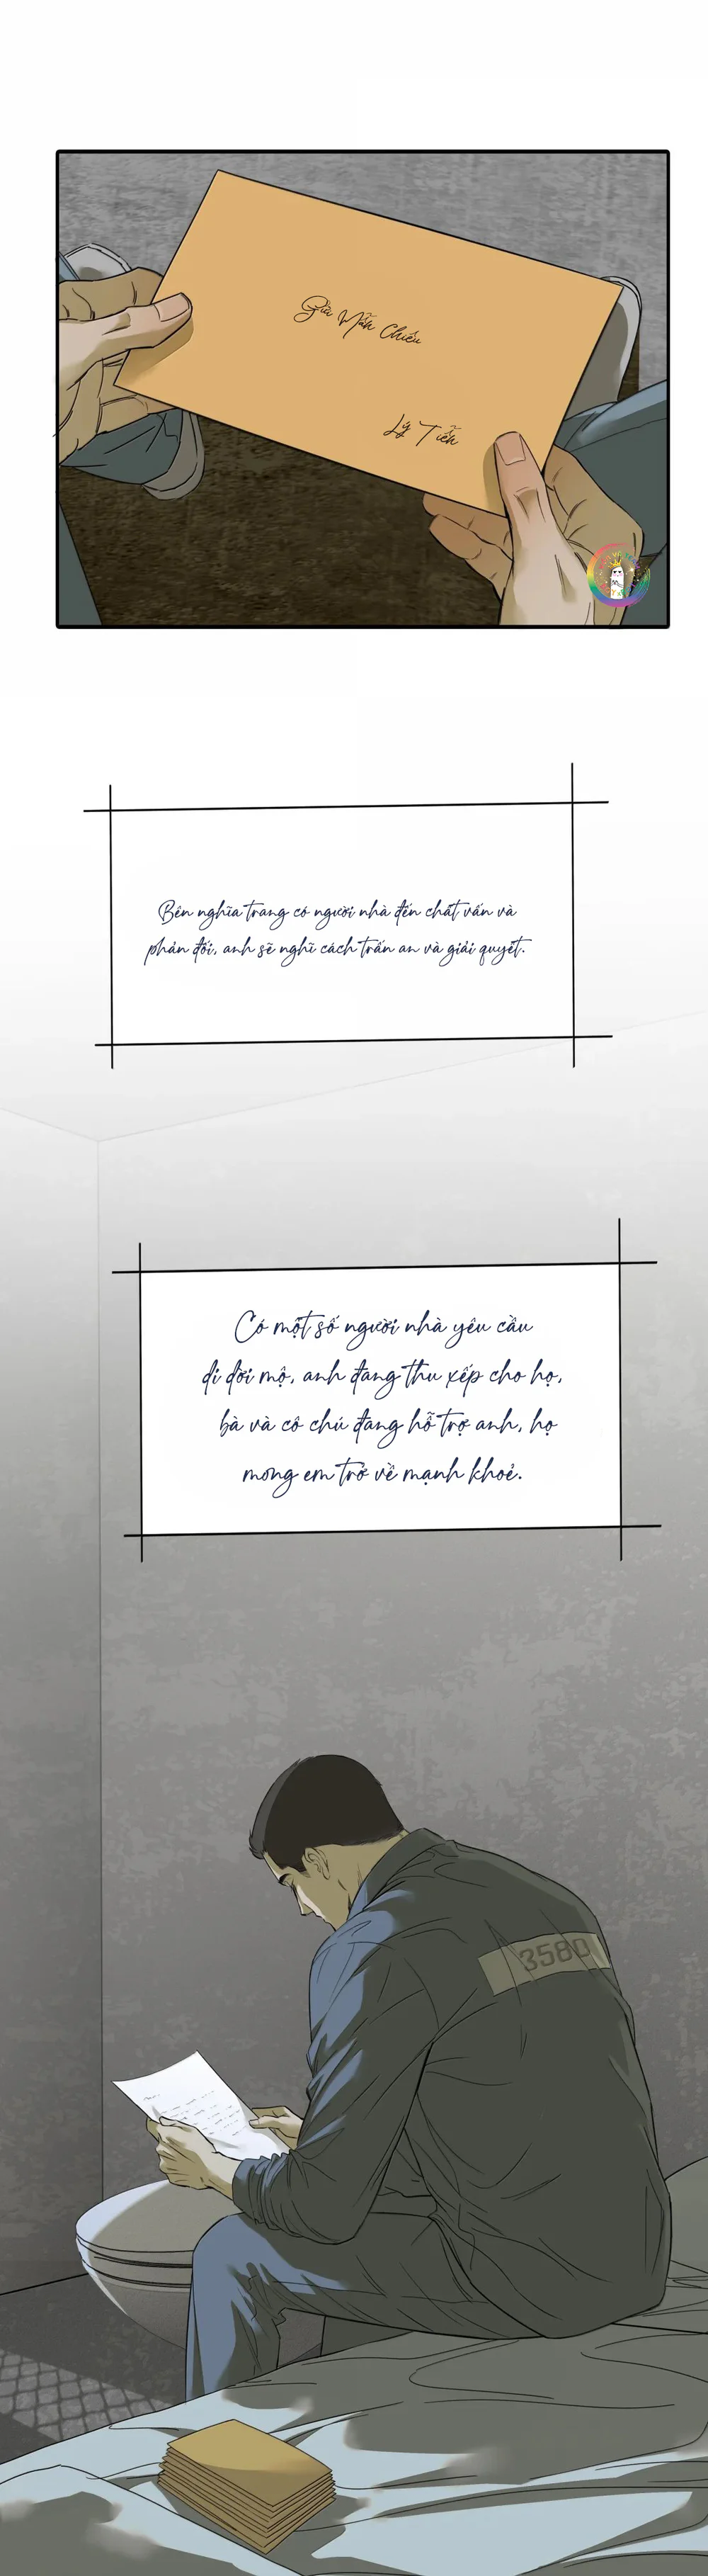 Giả Mẫn Chiếu
Lý Tiễn
Bên nghĩa trang có người nhà đến chất vấn và
phản đối, anh sẽ nghĩ cách trấn an và giải quyết.
Có một số người nhà yêu cầu
di dời mộ, anh đang thu xếp cho họ,
bà và cô chú đang hỗ trợ anh, họ
mong em trở về mạnh khoẻ.
3580